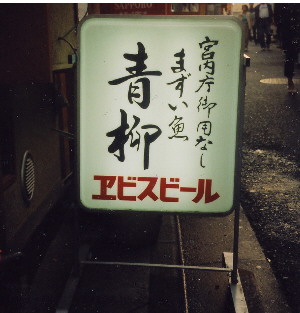 宮内庁御用なし
まずい魚
青柳
ヱビスビール
SAPPORO